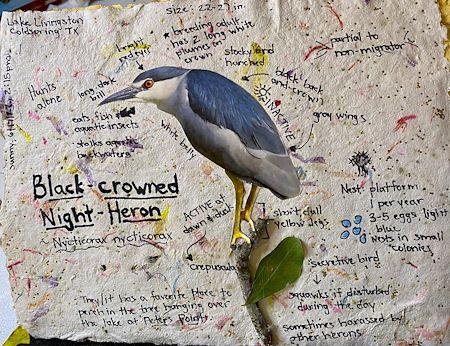 Lake Livingston
Coldspring TX
Size: 22-27 in.
* breeding adult
has 2 long white
plumes on
crown
bright
red eyes
stocky and
hunched
partial to
non-migrator
Hunts
alone
long dark
bill
black back
and crown
gray wings
eats fish &
aquatic insects
stalks aquatic
backwaters
white belly
Black-crowned
Night-Heron
Nycticorax nycticorax
ACTIVE at
dawn & dusk
crepuscular
short, dull
yellow legs
Nest: platform
1 per year
3-5 eggs, light
blue
Nests in small
colonies
secretive bird
squawks if disturbed
during the day
sometimes harassed by
other herons
it has a favorite place to
perch in the tree hanging over
the lake at Peter's Point